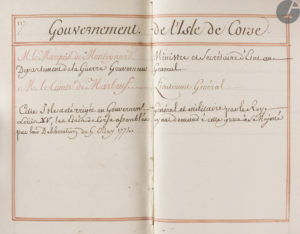 117.
Gouvernement de l'Isle de Corse
M. le Marquis de Monteynard Ministre et Secretaire d'Etat au
Departement de la Guerre Gouverneur General
M. le Comte de Marbeuf Lieutenant Général
Cette Isle a été érigée en Gouvernement Général et militaire par le Roy
Louis XV, les de Corse ayant demandé cette grace à Sa Majesté
par leur Deliberation du 6. May 1772.